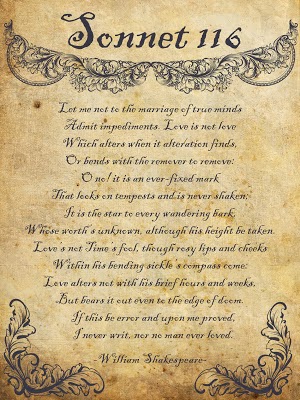 Sonnet 116
Let me not to the marriage of true minds
Admit impediments. Love is not love
Which alters when it alteration finds,
Or bends with the remover to remove:
O no! it is an ever-fixed mark
That looks on tempests and is never shaken;
It is the star to every wandering bark,
Whose worth's unknown, although his height be taken.
Love's not Time's fool, though rosy lips and cheeks
Within his bending sickle's compass come:
Love alters not with his brief hours and weeks,
But bears it out even to the edge of doom.
If this be error and upon me proved,
I never writ, nor no man ever loved.
-William Shakespeare-